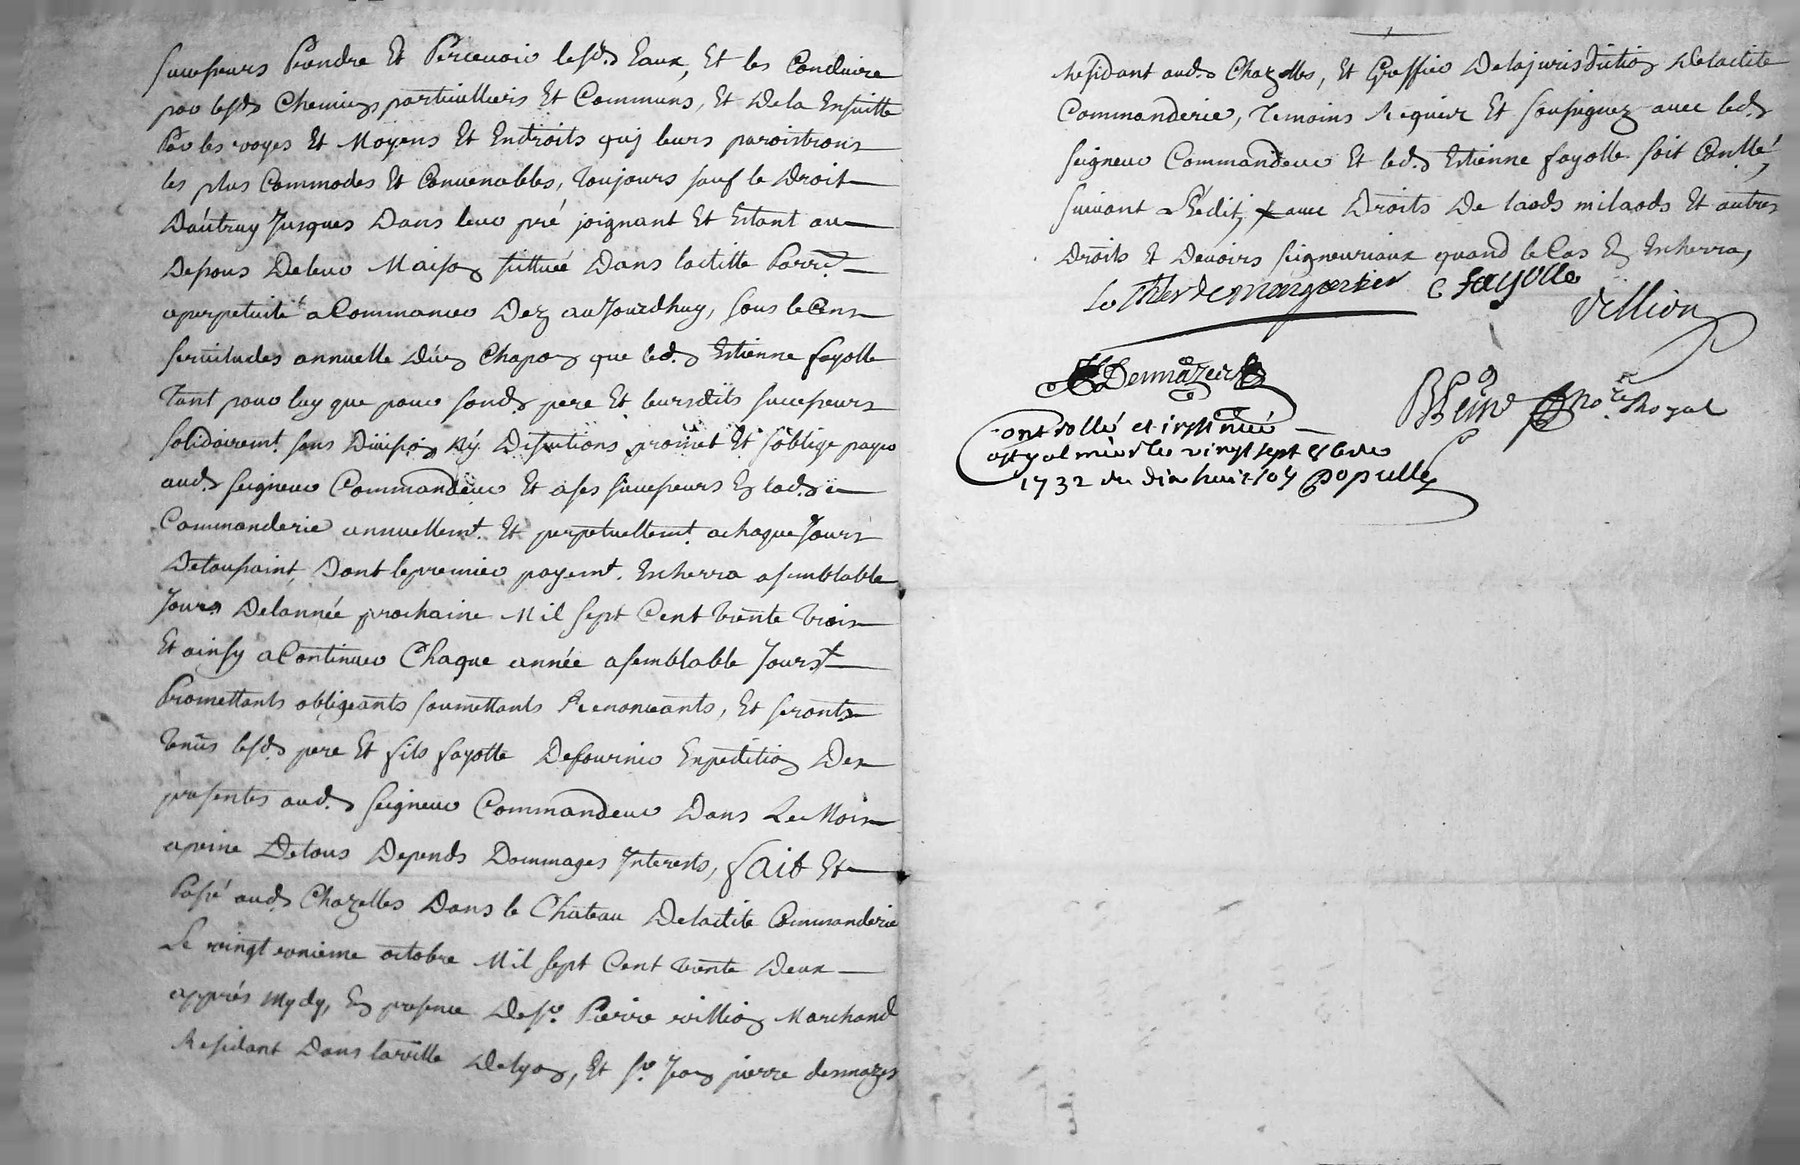 successeurs Prendre Et Percevoir lesd. Eaux, Et les Conduire
par lesd. Chemins particulliers Et Communs, Et De la Ensuitte
Par les voyes Et Moyens Et Endroits quj leurs paroistronts
les plus Commodes Et Convenables, Toujours sauf le Droit
D'autruy Jusques Dans leur pré joignant Et Estant au
Desous De leur Maison sittuée Dans laditte Parre.
a perpetuité a Commancer Dez aujourdhuy, sous le Cens
servitudes annuelle D'un Chapon que led. Estienne fayolle
Tant pour luy que pour sond. pere Et leursdits successeurs
solidairemt. sans Division Ny Discutions promet Et s'oblige payer
aud. seigneur Commandeur Et a ses successeurs En lad.
Commanderie annuellemt. Et perpetuellemt. a chaque Jours
De tousaint, Dont le premier payemt. Encherra a semblable
Jours De lannée prochaine Mil sept Cent trente trois
Et ainsy a Continuer Chaque année a semblable Jours
Promettants obligeants soumettants Renonceants, Et seronts
tenus lesd. pere Et fils fayolle De fournir Expedition Des
presentes aud. seigneur Commandeur Dans Le Mois
a peine De tous Depends Dommages Interests, fait Et
Passé aud. Chazelles Dans le Chateau De ladite Commanderie
Le vingt unieme octobre Mil sept Cent trente Deux
apprés mydy, En presence De sr. Pierre villion Marchand
Residant Dans la ville De lyon, Et sr. Jean pierre desmazes
residant aud. Chazelles, Et Greffier De la jurisdiction De ladite
Commanderie, Temoins Requier Et sousignez avec led.
seigneur Commandeur Et led. Estienne fayolle soit Conllé,
suivant L'édit, avec Droits De laods milaods Et autres
Droits Et Devoirs seigneuriaux quand le Cas En Encherra,
Le Chler de
E fayolle
villion
Desmazes
nore. Royal
Controllé et insinué
a st galmier le vingt sept 8bre
1732 du dix huit sols populle